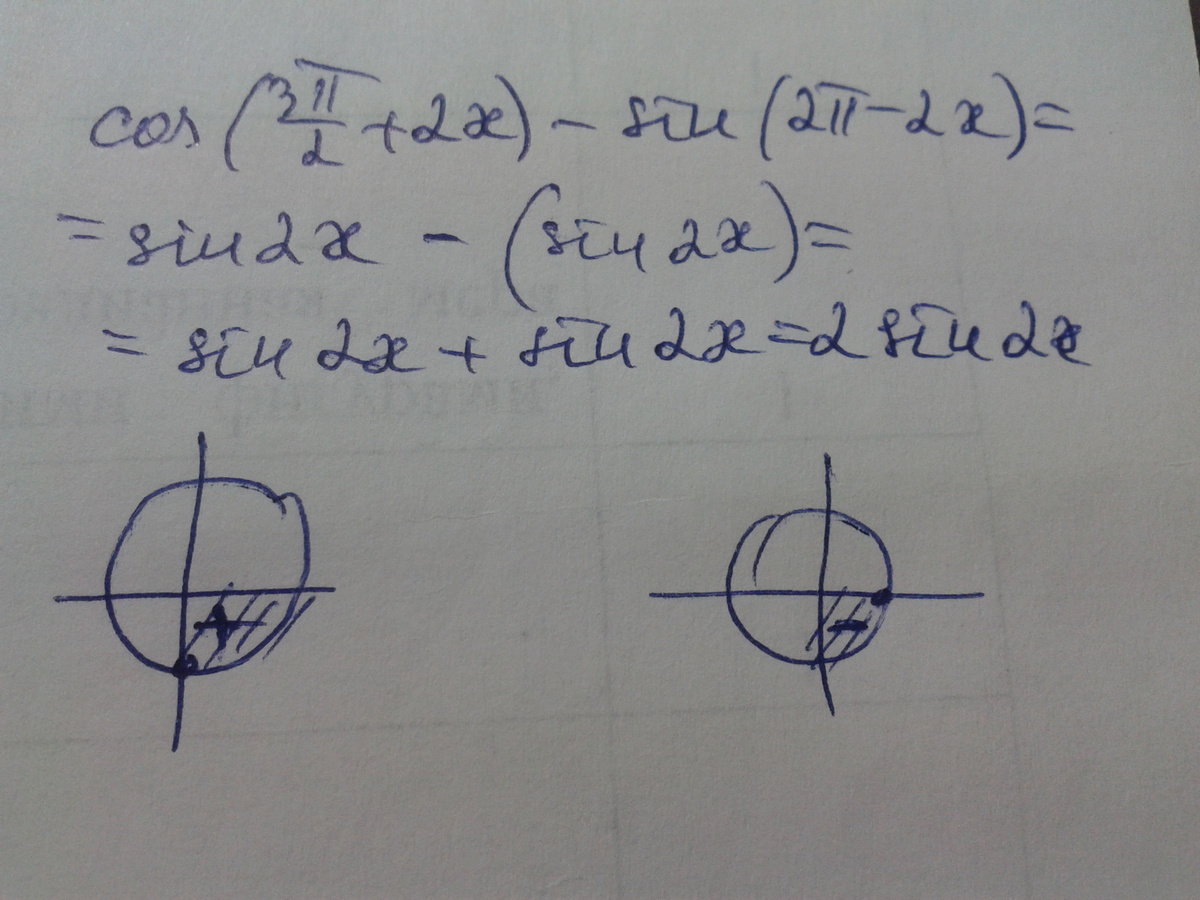 cos(3π/2+2x)-sin(2π-2x)=
=sin2x-(sin2x)=
=sin2x+sin2x=2sin2x
+ -